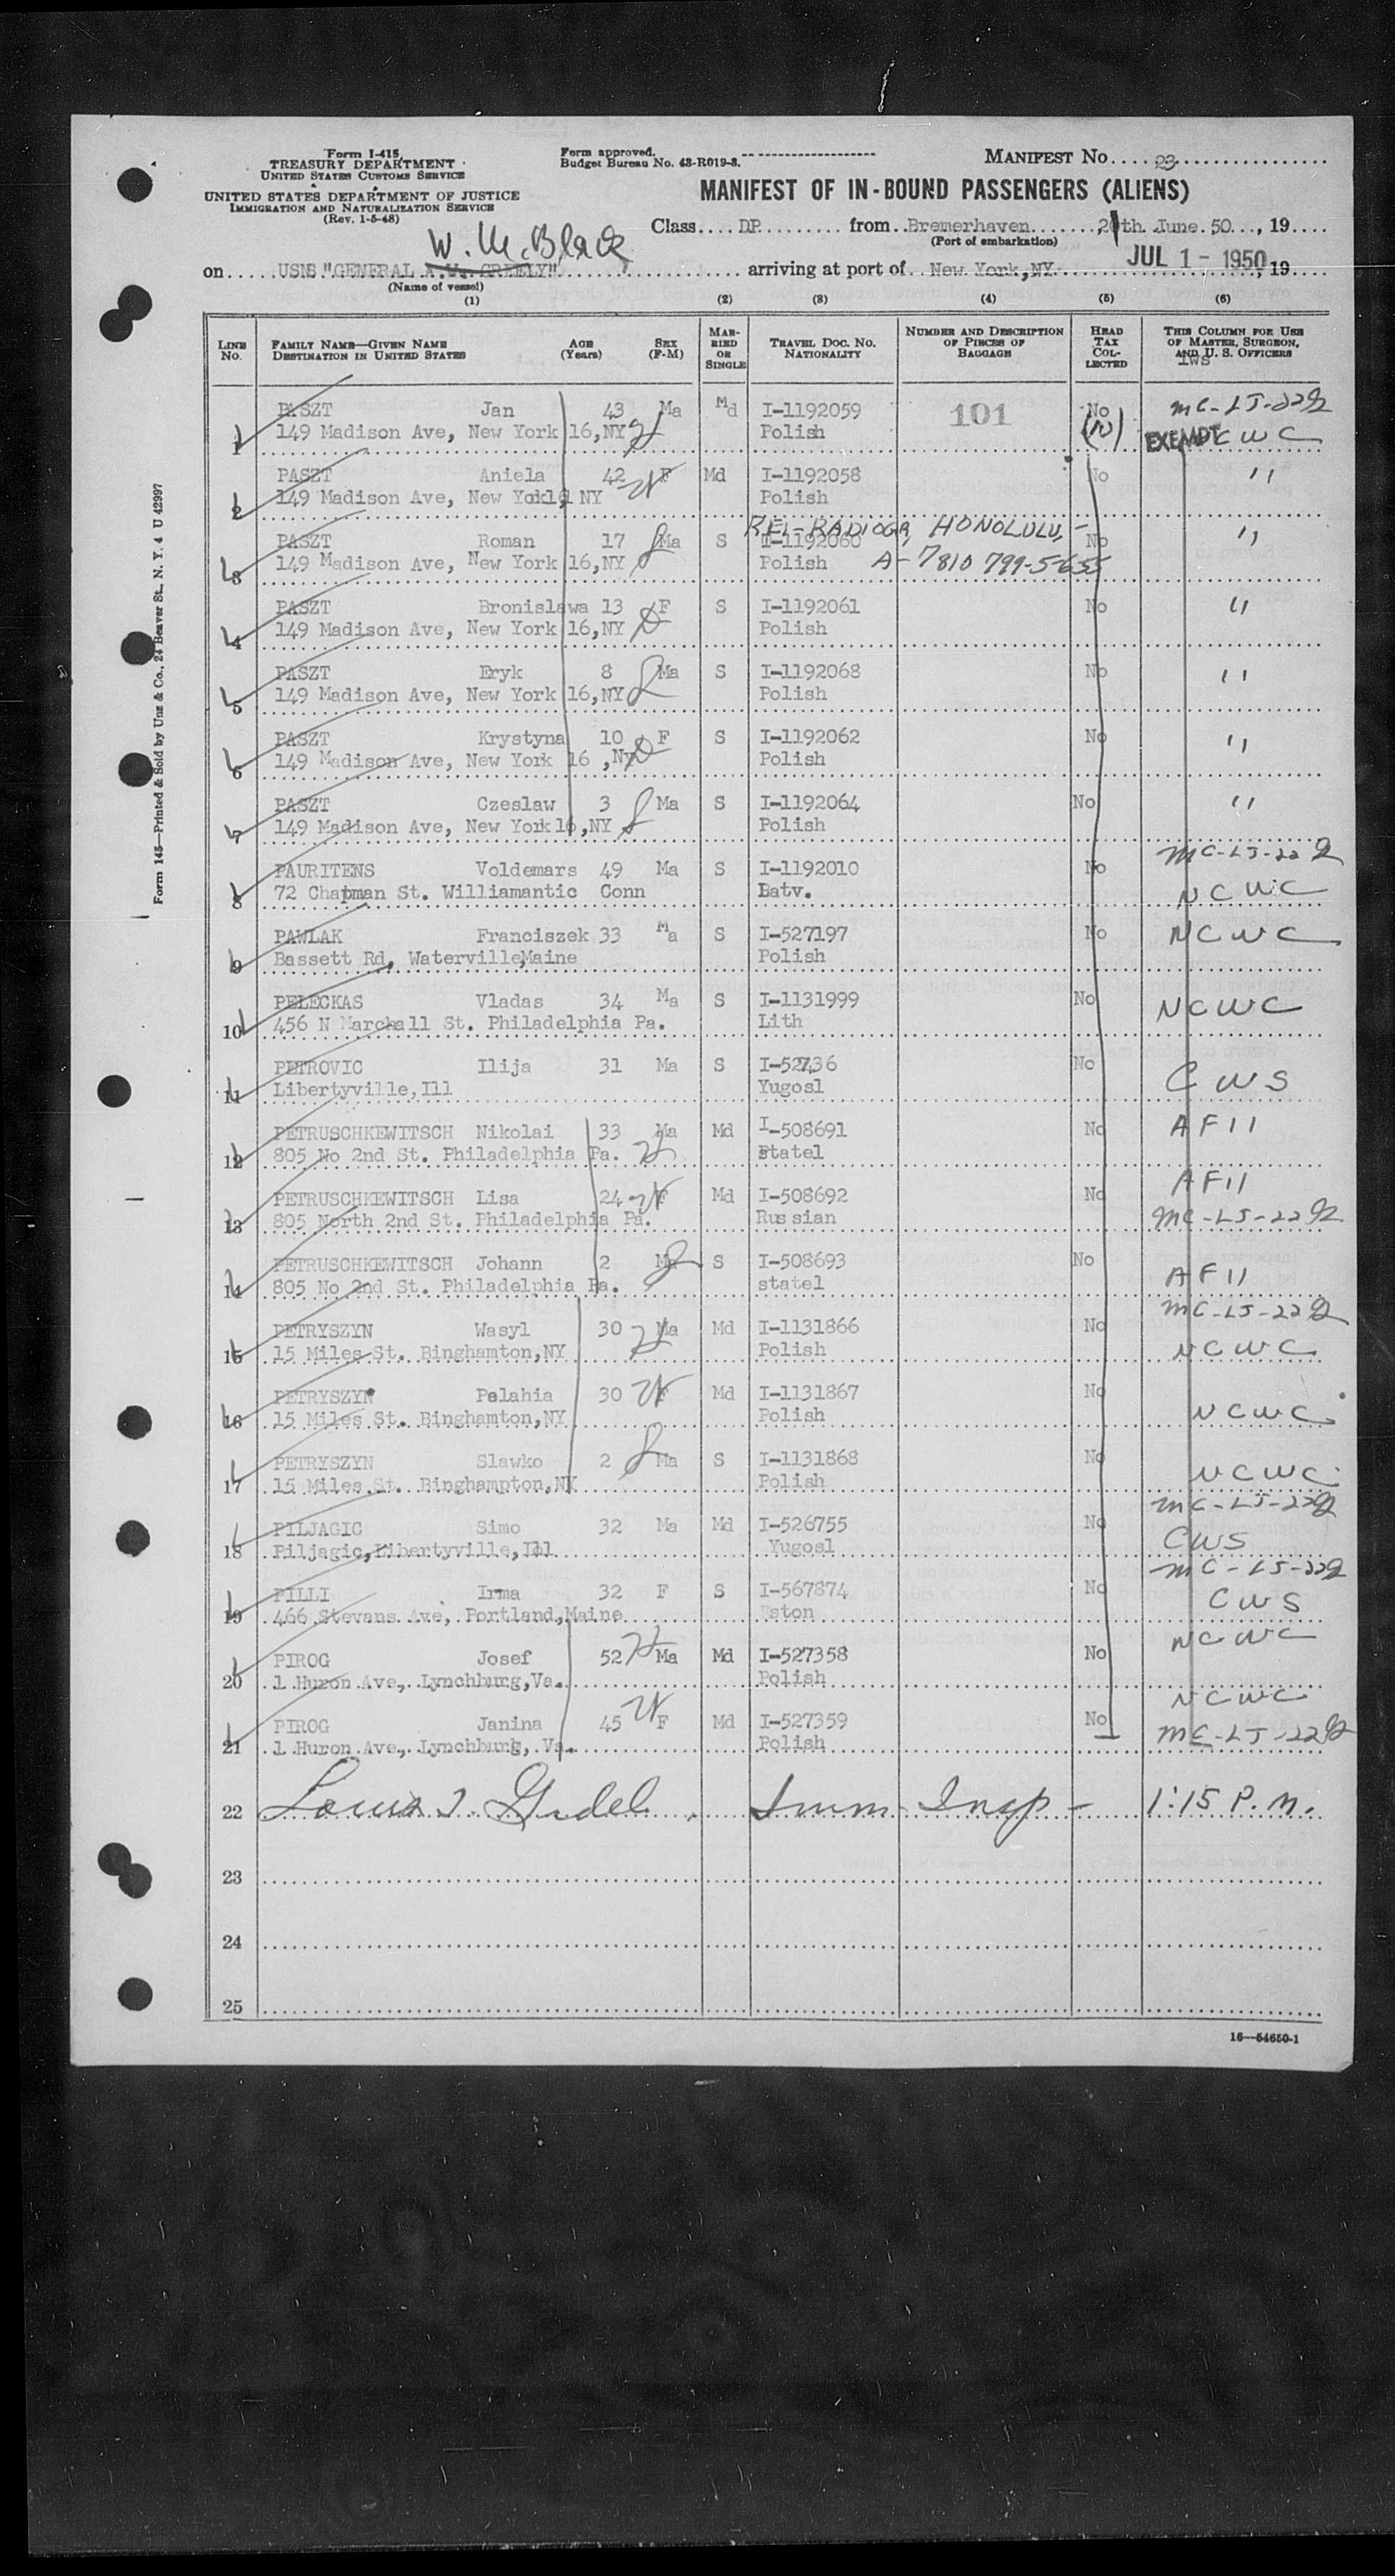 Form I-415
TREASURY DEPARTMENT
UNITED STATES CUSTOMS SERVICE
UNITED STATES DEPARTMENT OF JUSTICE
IMMIGRATION AND NATURALIZATION SERVICE
(Rev. 1-5-48)
Form approved.
Budget Bureau No. 43-R019-3.
MANIFEST No. 23
MANIFEST OF IN-BOUND PASSENGERS (ALIENS)
Class DP from Bremerhaven, 21th June 50, 19
(Port of embarkation)
W. M. Black
on USNS "GENERAL A.W. GREELY" arriving at port of New York, NY JUL 1 - 1950, 19
(Name of vessel)
(1) (2) (3) (4) (5) (6)
LINE No. FAMILY NAME—GIVEN NAME DESTINATION IN UNITED STATES AGE (Years) SEX (F-M) MARRIED OR SINGLE TRAVEL DOC. NO. NATIONALITY NUMBER AND DESCRIPTION OF PIECES OF BAGGAGE HEAD TAX COLLECTED THIS COLUMN FOR USE OF MASTER, SURGEON, AND U. S. OFFICERS
iws
PASZT Jan 43 Ma Md I-1192059 101 No MC-LJ-22
1 149 Madison Ave, New York 16, NY Polish (N) EXEMPT CWC
PASZT Aniela 42 F Md I-1192058 No "
2 149 Madison Ave, New York16 NY Polish
REL-RADIOGR, HONOLULU, -
PASZT Roman 17 Ma S I-1192060 No "
3 149 Madison Ave, New York 16, NY Polish A-7810 799-5655
PASZT Bronislawa 13 F S I-1192061 No "
4 149 Madison Ave, New York 16, NY Polish
PASZT Eryk 8 Ma S I-1192068 No "
5 149 Madison Ave, New York 16, NY Polish
PASZT Krystyna 10 F S I-1192062 No "
6 149 Madison Ave, New York 16 ,NY Polish
PASZT Czeslaw 3 Ma S I-1192064 No "
7 149 Madison Ave, New York16,NY Polish
MC-LJ-22
PAURITENS Voldemars 49 Ma S I-1192010 No
8 72 Chapman St. Williamantic Conn Batv. NCWC
PAWLAK Franciszek 33 Ma S I-527197 No NCWC
9 Bassett Rd, Waterville,Maine Polish
PELECKAS Vladas 34 Ma S I-1131999 No NCWC
10 456 N Marchall St. Philadelphia Pa. Lith
PETROVIC Ilija 31 Ma S No
11 Libertyville, Ill Yugosl CWS
PETRUSCHKEWITSCH Nikolai 33 Ma Md I-508691 No AF11
12 805 No 2nd St. Philadelphia Pa. Statel
PETRUSCHKEWITSCH Lisa 24 F Md I-508692 No AF11
13 805 North 2nd St. Philadelphia Pa. Russian MC-LJ-22
PETRUSCHKEWITSCH Johann 2 Ma S I-508693 No AF11
14 805 No 2nd St. Philadelphia Pa. statel
MC-LJ-22
PETRYSZYN Wasyl 30 Ma Md I-1131866 No
15 15 Miles St. Binghamton, NY Polish NCWC
PETRYSZYN Pelahia 30 F Md I-1131867 No
16 15 Miles St. Binghamton, NY Polish NCWC
PETRYSZYN Slawko 2 Ma S I-1131868 No
17 15 Miles St. Binghampton, NY Polish NCWC
MC-LJ-22
PILJAGIC Simo 32 Ma Md I-526755 No CWS
18 Piljagic, Libertyville, Ill Yugosl
MC-LJ-22
PILLI Irma 32 F S I-567874 No CWS
19 466 Stevans Ave, Portland, Maine Eston
NCWC
PIROG Josef 52 Ma Md I-527358 No
20 1 Huron Ave, Lynchburg, Va. Polish
NCWC
PIROG Janina 45 F Md I-527359 No
21 1 Huron Ave, Lynchburg, Va. Polish MC-LJ-22
22 Imm. Insp - 1:15 P.M.
23
24
25
16—54650-1
Form 145—Printed & Sold by Unz & Co., 24 Beaver St., N. Y. 4 U 42997